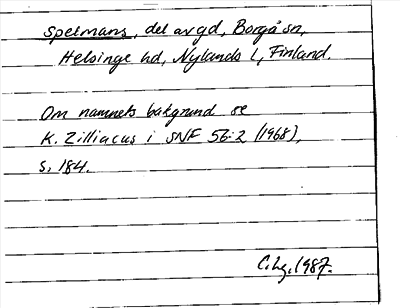 Spelmans, del av gd, Borgå sn,
Helsinge hd, Nylands l, Finland.
Om namnets bakgrund se
K. Zilliacus i SNF 56:2 (1968),
s. 184.
C.Lg. 1987.